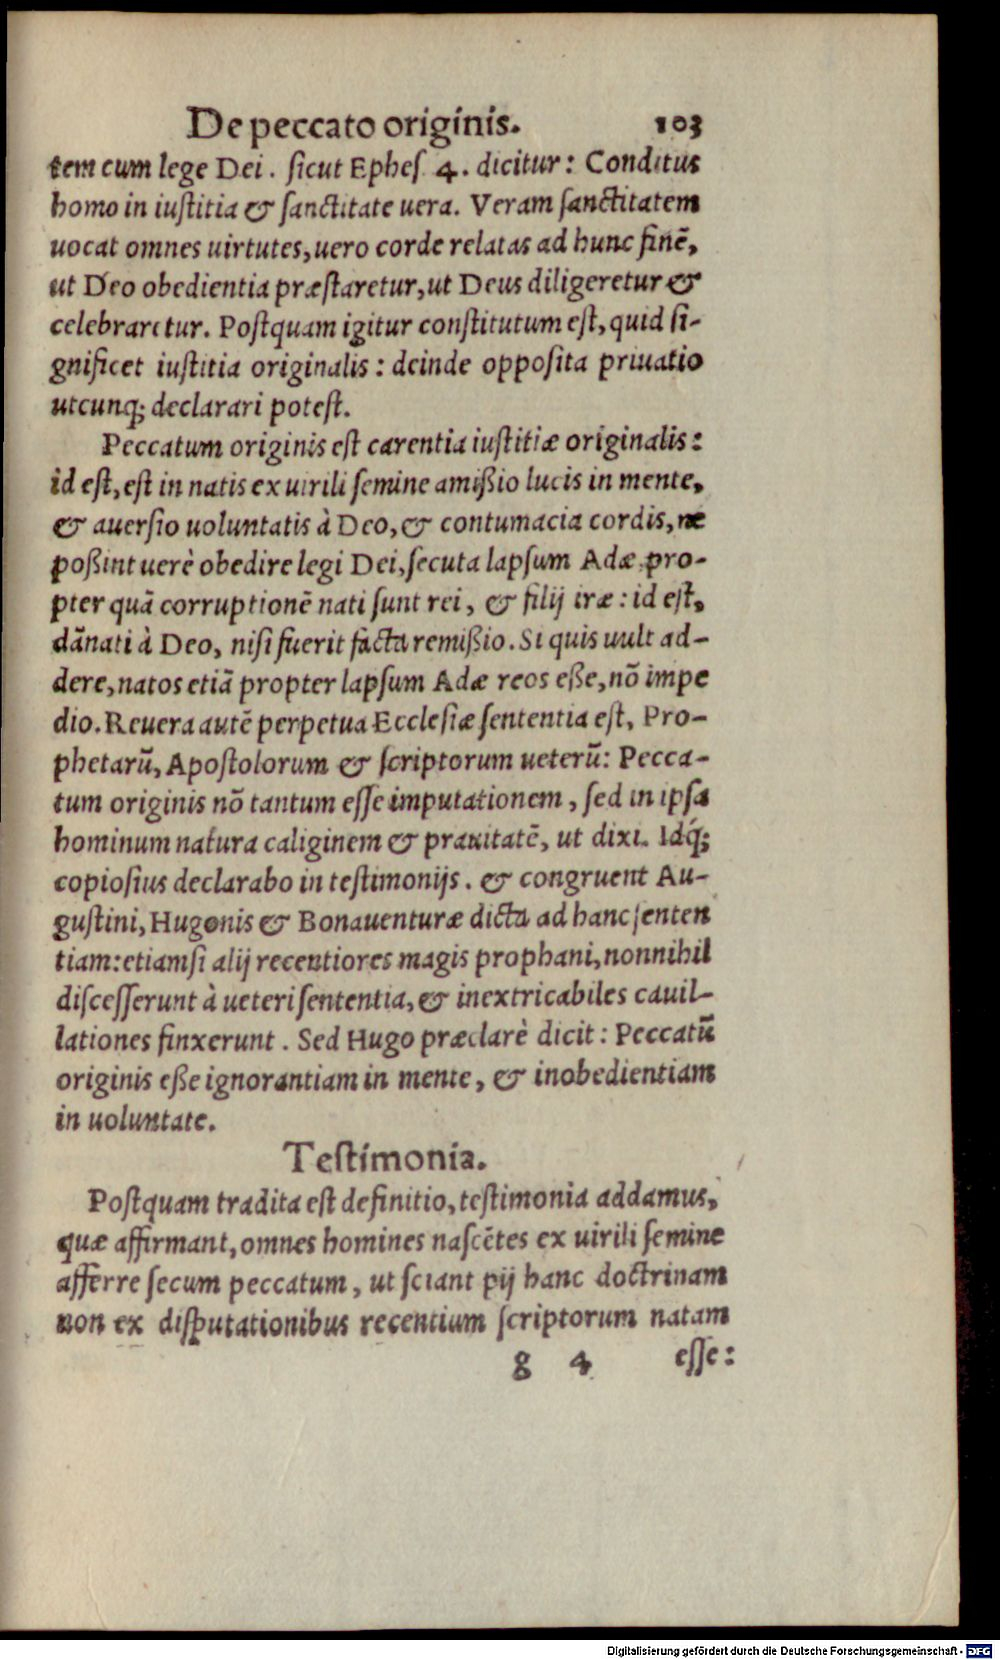 De peccato originis. 103
tem cum lege Dei. sicut Ephes 4. dicitur: Conditus
homo in iustitia & sanctitate uera. Veram sanctitatem
uocat omnes uirtutes, uero corde relatas ad hunc finē,
ut Deo obedientia præstaretur, ut Deus diligeretur &
celebraretur. Postquam igitur constitutum est, quid si-
gnificet iustitia originalis: deinde opposita priuatio
utcunq; declarari potest.
Peccatum originis est carentia iustitiæ originalis:
id est, est in natis ex uirili semine amißio lucis in mente,
& auersio uoluntatis à Deo, & contumacia cordis, ne
poßint uerè obedire legi Dei, secuta lapsum Adæ, pro-
pter quā corruptionē nati sunt rei, & filij iræ: id est,
dānati à Deo, nisi fuerit facta remißio. Si quis uult ad-
dere, natos etiā propter lapsum Adæ reos eße, nō impe
dio. Reuera autē perpetua Ecclesiæ sententia est, Pro-
phetarū, Apostolorum & scriptorum ueterū: Pecca-
tum originis nō tantum esse imputationem, sed in ipsa
hominum natura caliginem & prauitatē, ut dixi. Idq́;
copiosius declarabo in testimonijs. & congruent Au-
gustini, Hugonis & Bonauenturæ dicta ad hanc senten
tiam: etiamsi alij recentiores magis prophani, nonnihil
discesserunt à ueteri sententia, & inextricabiles cauil-
lationes finxerunt. Sed Hugo præclarè dicit: Peccatū
originis eße ignorantiam in mente, & inobedientiam
in uoluntate.
Testimonia.
Postquam tradita est definitio, testimonia addamus,
quæ affirmant, omnes homines nascētes ex uirili semine
afferre secum peccatum, ut sciant pij hanc doctrinam
non ex disputationibus recentium scriptorum natam
g 4 esse:
Digitalisierung gefördert durch die Deutsche Forschungsgemeinschaft - DFG